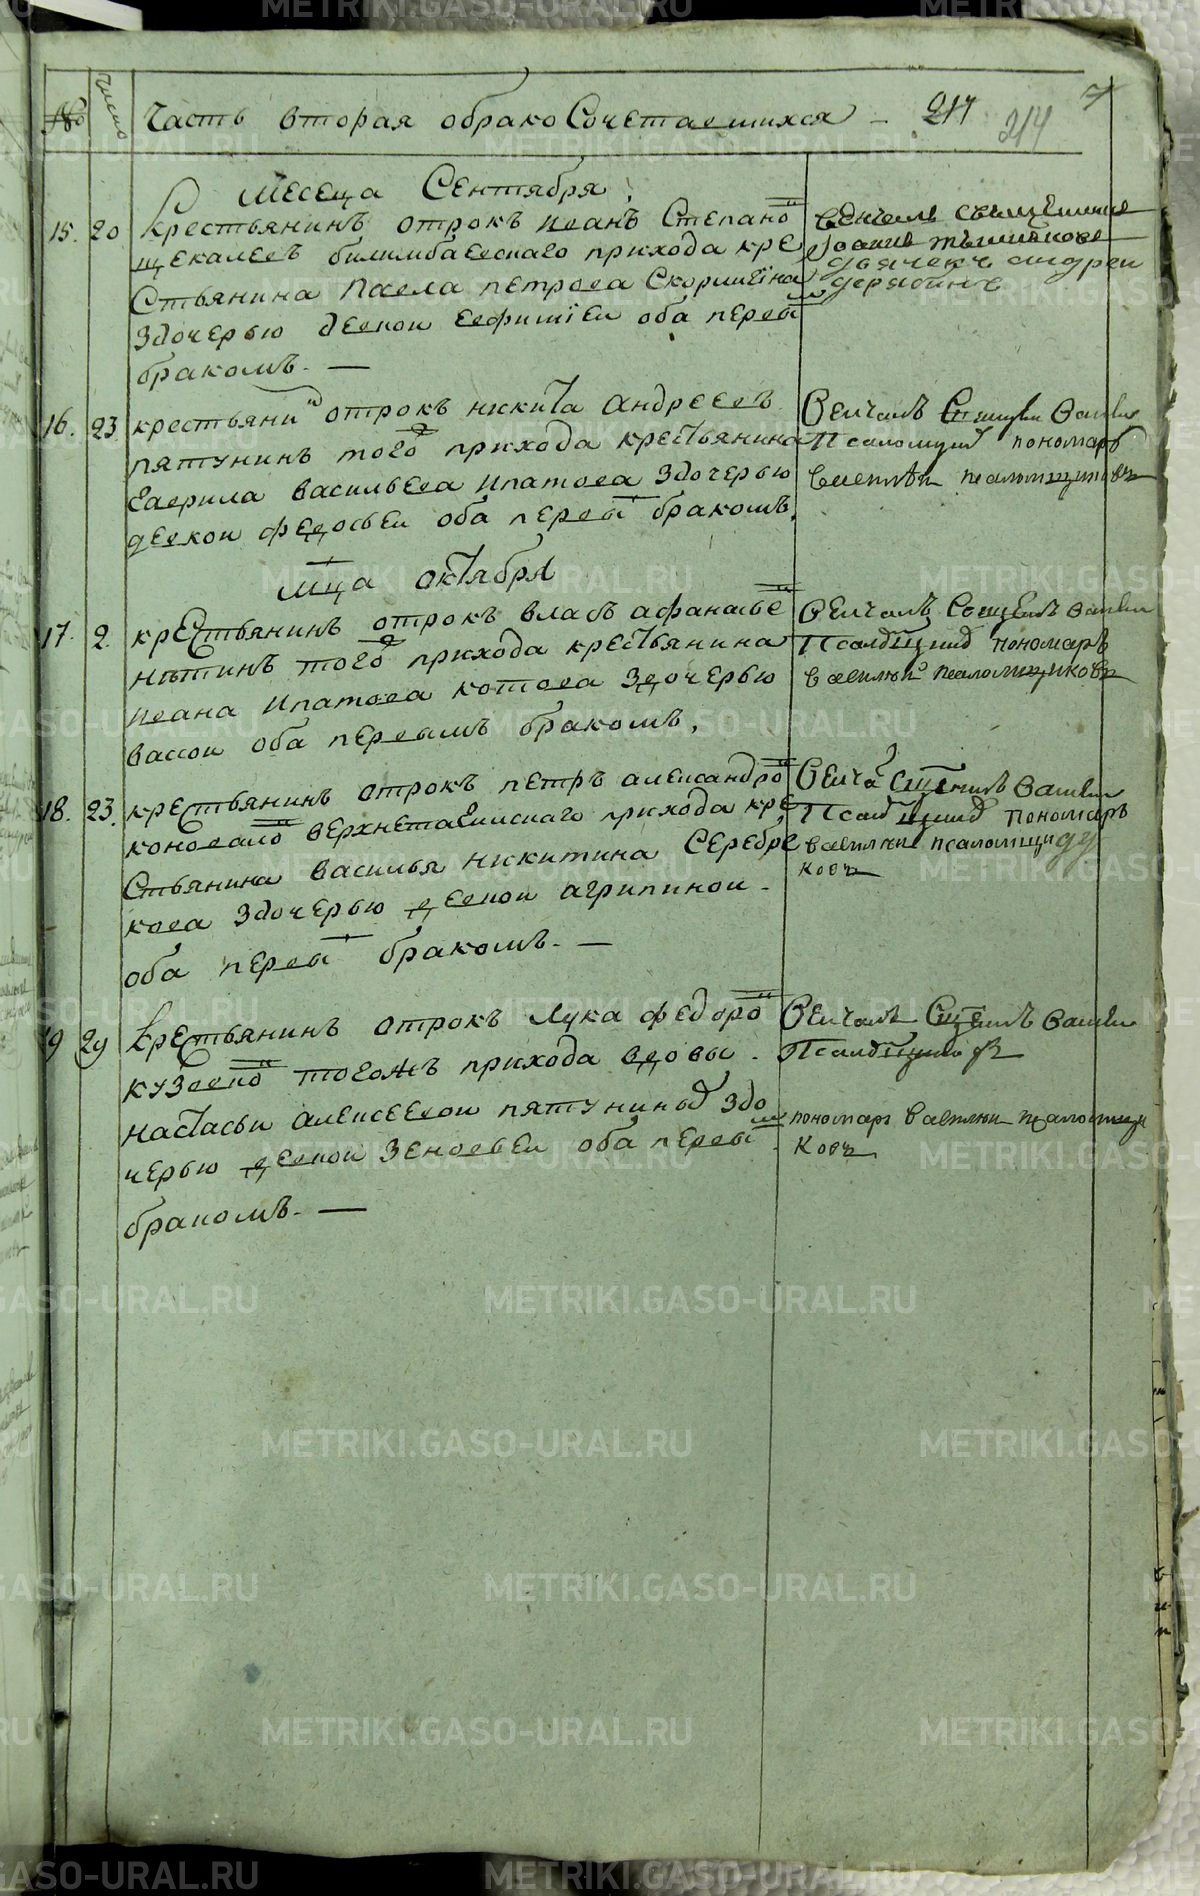 № число Часть вторая обракоСочетаевшихся - 217 214 7
Месеца Сентября
15. 20 Крестьянинъ отрокъ иванъ Степано
щекалевъ билимбаевскаго прихода кре
Стьянина Павла петрова Скорынина
здочерью девкои евфимiеи оба первы
бракомъ. —
венчалъ священникъ
Iоаннъ
дьячекъ андреи
дерябинъ
16. 23 крестьяни отрокъ никита андреевъ
пятунинъ того прихода крестьянина
гаврила васильева ипатова здочерью
девкои федосьеи оба первы бракомъ.
Венчалъ Сщенникъ
Псаломщик пономарь
василеи псаломщиковъ
мца октября
17. 2. крестьянинъ отрокъ власъ афанасье
никтинъ того прихода крестьянина
ивана ипатова котова здочерью
вассои оба первымъ бракомъ.
Венчалъ Сщенникъ
пономарь
василеи псаломщиковъ
18. 23. крестьянинъ отрокъ петръ александро
коновало верхнетагилскаго прихода кре
Стьянина василья никитина Серебре
кова здочерью девкои агрипинои -
оба первы бракомъ. —
Венча Сщенникъ
пономарь
василеи псаломщи
ковъ
19 29 крестьянинъ отрокъ лука федоро
кузевно тогожъ прихода вдовы -
настасьи алексеевои пятунины здо
черью девкои зеновьеи оба первы
бракомъ. —
Венчалъ Сщенникъ
пономарь василеи псаломщи
ковъ
METRIKI.GASO-URAL.RU